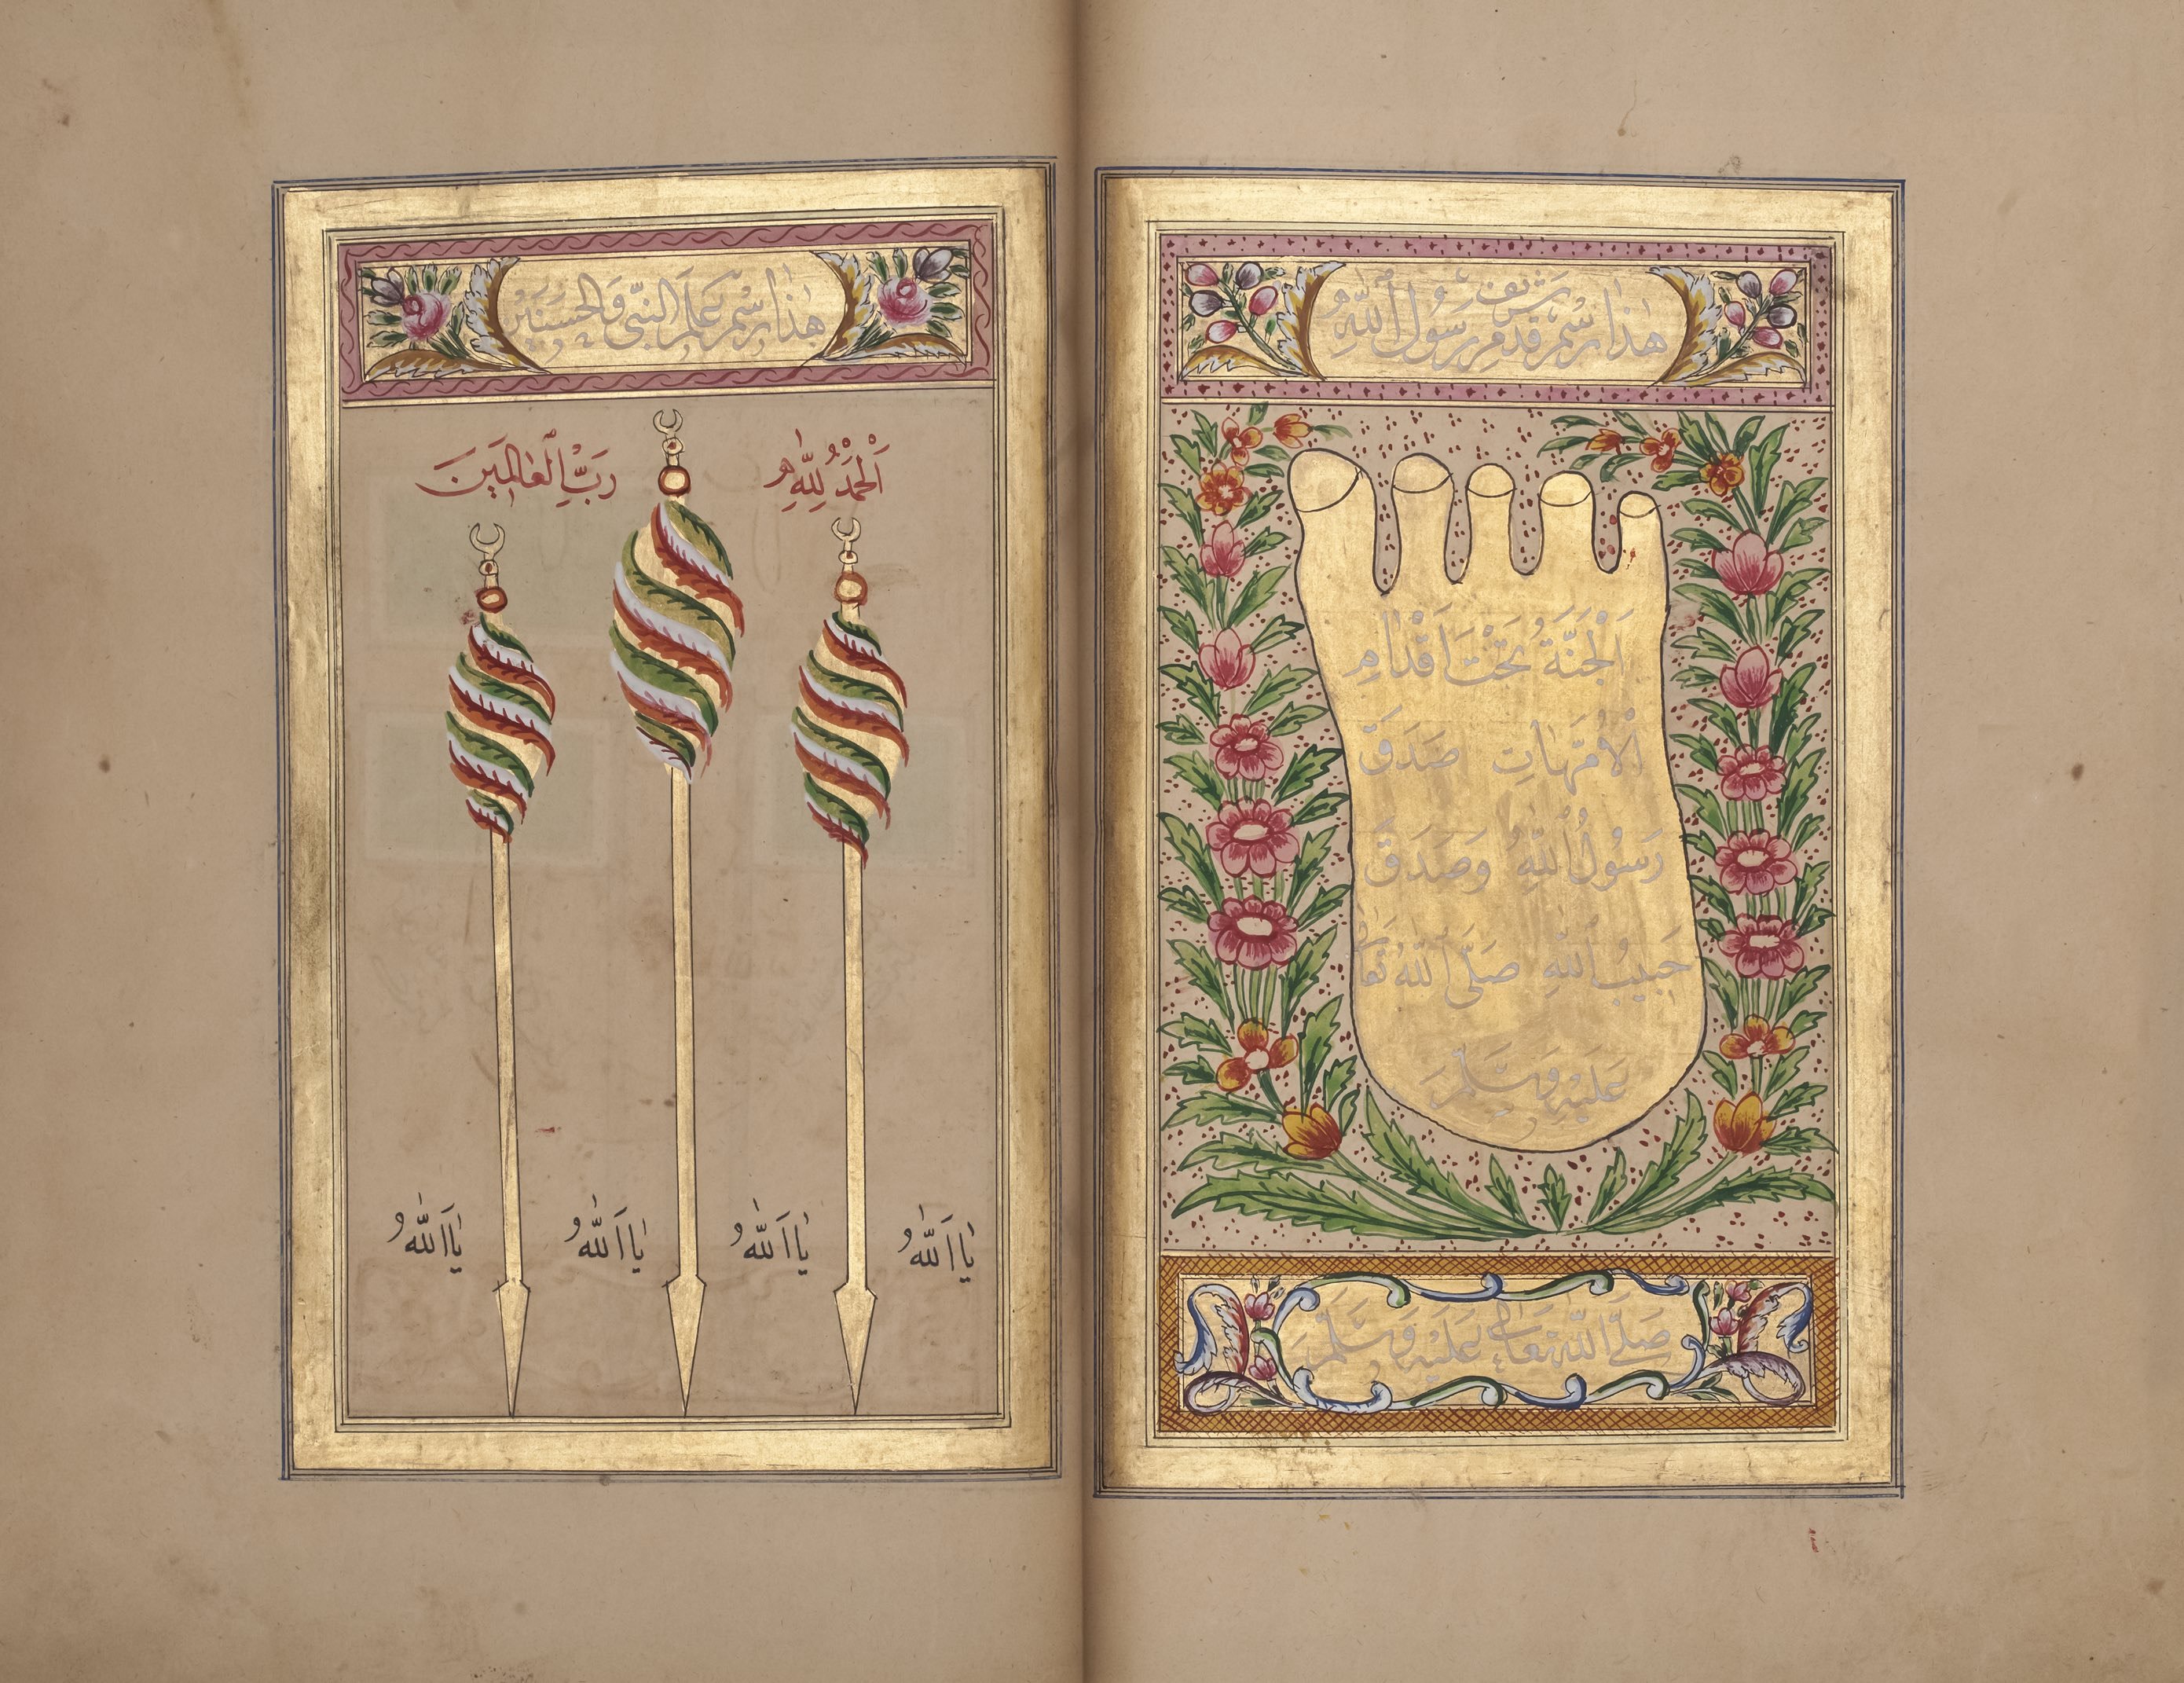 هٰذا رسم قدم شريف رسول اللّٰه
اَلْجَنَّةُ تَحْتَ اَقْدَامِ
الْاُمَّهَاتِ صَدَقَ
رَسُولُ اللّٰهِ وَصَدَقَ
حَبِيبُ اللّٰهِ صَلَّى اللّٰهُ تَعَالٰى
عَلَيْهِ وَسَلَّمَ
صَلَّى اللّٰه تعالٰى عَلَيْهِ وَسَلَّمَ
هٰذا رسم عَلَم النبي وَالحسنين
اَلْحَمْدُ لِلّٰهِ رَبِّ الْعَالَمِينَ
يَا اَللّٰهُ يَا اَللّٰهُ يَا اَللّٰهُ يَا اَللّٰهُ